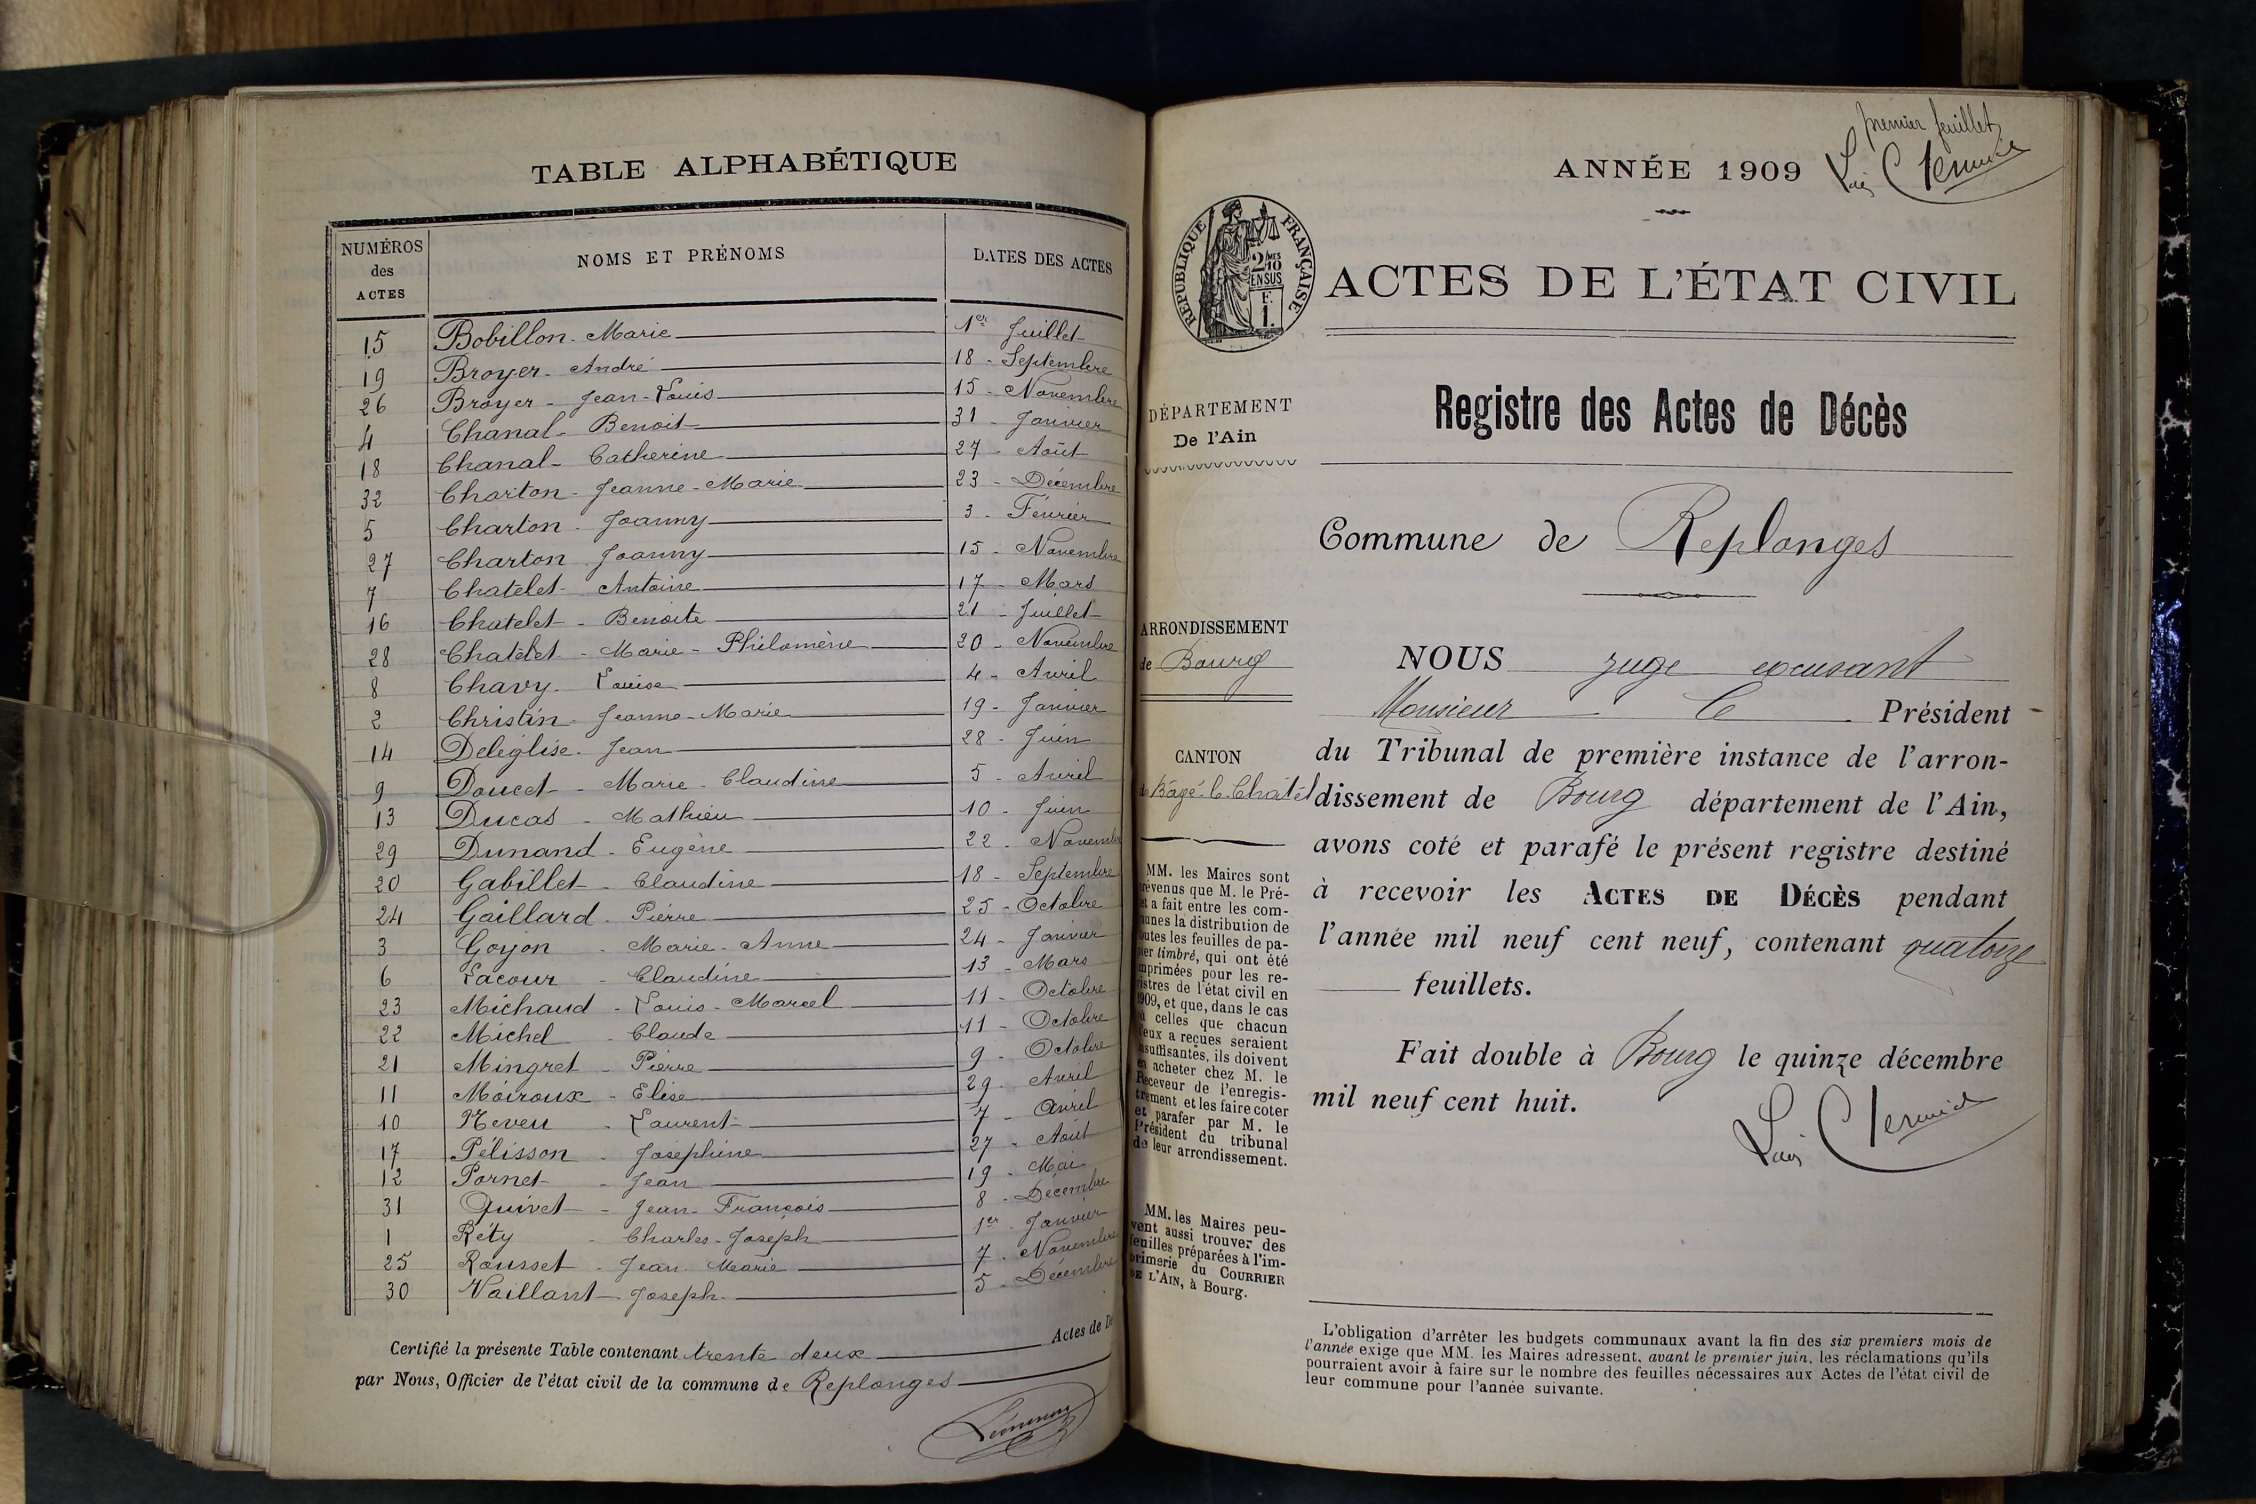 TABLE ALPHABÉTIQUE
NUMÉROS des ACTES NOMS ET PRÉNOMS DATES DES ACTES
15 Bobillon - Marie 1er Juillet
19 Broyer - André 18 - Septembre
26 Broyer - Jean-Louis 15 - Novembre
4 Chanal - Benoit 31 - Janvier
18 Chanal - Catherine 27 - Août
32 Charton - Jeanne-Marie 23 - Décembre
5 Charton - Joanny 3 - Février
27 Charton Joanny 15 - Novembre
7 Chatelet - Antoine 17 - Mars
16 Chatelet - Benoite 21 - Juillet
28 Chatelet - Marie - Philomène 20 - Novembre
8 Chavy - Louise 4 - Avril
2 Christin - Jeanne-Marie 19 - Janvier
14 Deleglise - Jean 28 - Juin
9 Doucet - Marie - Claudine 5 - Avril
13 Ducas - Mathieu 10 - Juin
29 Dunand - Eugène 22 - Novembre
20 Gabillet - Claudine 18 - Septembre
24 Gaillard - Pierre 25 - Octobre
3 Goyon - Marie - Anne 24 - Janvier
6 Lacour - Claudine 13 - Mars
23 Michaud - Louis - Marcel 11 - Octobre
22 Michel - Claude 11 - Octobre
21 Mingret - Pierre 9 - Octobre
11 Moiroux - Elise 29 - Avril
10 Neveu - Laurent 7 - Avril
17 Pélisson - Joséphine 27 - Août
12 Pornet - Jean 19 - Mai
31 Quivet - Jean - François 8 - Décembre
1 Réty - Charles - Joseph 1er Janvier
25 Rousset - Jean Marie 7 - Novembre
30 Vaillant - Joseph 5 - Décembre
Certifié la présente Table contenant trente deux Actes de Dé
par Nous, Officier de l'état civil de la commune de Replonges
premier feuillet
ANNÉE 1909
RÉPUBLIQUE FRANÇAISE
2/10 EN SUS
ACTES DE L'ÉTAT CIVIL
Registre des Actes de Décès
DÉPARTEMENT
De l'Ain
Commune de Replonges
ARRONDISSEMENT
de Bourg
CANTON
de Bâgé-le-Châtel
MM. les Maires sont
prévenus que M. le Pré-
fet a fait entre les com-
munes la distribution de
toutes les feuilles de pa-
pier timbré, qui ont été
imprimées pour les re-
gistres de l'état civil en
1909, et que, dans le cas
où celles que chacun
d'eux a reçues seraient
insuffisantes, ils doivent
en acheter chez M. le
Receveur de l'enregis-
trement et les faire coter
et parafer par M. le
Président du tribunal
de leur arrondissement.
MM. les Maires peu-
vent aussi trouver des
feuilles préparées à l'im-
primerie du COURRIER
DE L'AIN, à Bourg.
NOUS juge excusant
Monsieur le Président
du Tribunal de première instance de l'arron-
dissement de Bourg département de l'Ain,
avons coté et parafé le présent registre destiné
à recevoir les ACTES DE DÉCÈS pendant
l'année mil neuf cent neuf, contenant quatorze
feuillets.
Fait double à Bourg le quinze décembre
mil neuf cent huit.
L'obligation d'arrêter les budgets communaux avant la fin des six premiers mois de
l'année exige que MM. les Maires adressent, avant le premier juin, les réclamations qu'ils
pourraient avoir à faire sur le nombre des feuilles nécessaires aux Actes de l'état civil de
leur commune pour l'année suivante.